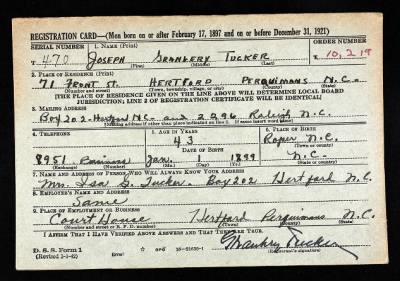 REGISTRATION CARD—(Men born on or after February 17, 1897 and on or before December 31, 1921)
SERIAL NUMBER 1. NAME (Print) ORDER NUMBER
T 470 JOSEPH GRANBERY TUCKER 10,219
(First) (Middle) (Last)
2. PLACE OF RESIDENCE (Print)
71 FRONT ST. HERTFORD PERQUIMANS N.C.
(Number and street) (Town, township, village, or city) (County) (State)
[THE PLACE OF RESIDENCE GIVEN ON THE LINE ABOVE WILL DETERMINE LOCAL BOARD
JURISDICTION; LINE 2 OF REGISTRATION CERTIFICATE WILL BE IDENTICAL]
3. MAILING ADDRESS
Box 202 - Hertford N.C. and 2096 Raleigh N.C.
[Mailing address if other than place indicated on line 2. If same insert word same]
4. TELEPHONE 5. AGE IN YEARS 6. PLACE OF BIRTH
43 Roper N.C.
DATE OF BIRTH (Town or county)
8951 Jan. 1 1899 N.C.
(Exchange) (Number) (Mo.) (Day) (Yr.) (State or country)
7. NAME AND ADDRESS OF PERSON WHO WILL ALWAYS KNOW YOUR ADDRESS
Mrs. Isa G. Tucker - Box 202 Hertford N.C.
8. EMPLOYER'S NAME AND ADDRESS
Same
9. PLACE OF EMPLOYMENT OR BUSINESS
Court House Hertford Perquimans N.C.
(Number and street or R. F. D. number) (Town) (County) (State)
I AFFIRM THAT I HAVE VERIFIED ABOVE ANSWERS AND THAT THEY ARE TRUE.
D. S. S. Form 1
(Revised 1-1-42) (over) 16—21630-1 Tucker
(Registrant's signature)